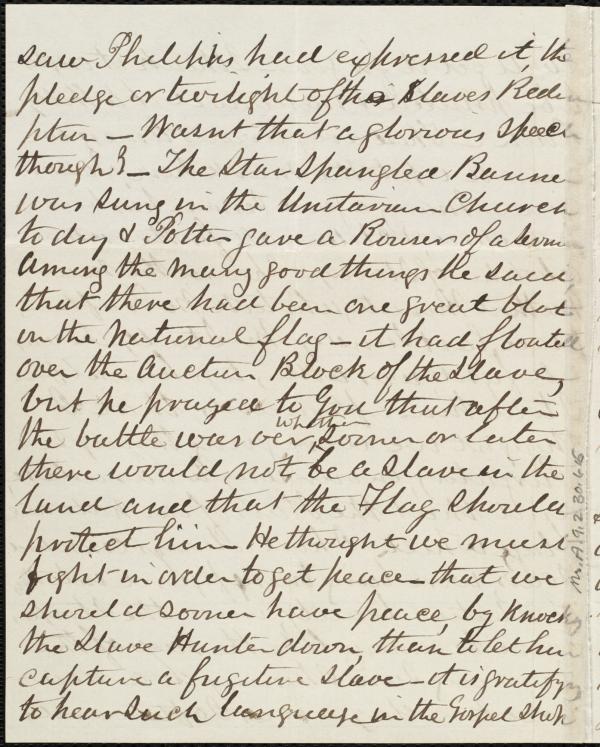 saw Philipps had expressed it, the
pledge or twilight of the Slaves Redem
ption – Wasnt that a glorious speech
though? – The Star Spangled Banne
was sung in the Unitarian Church
to day & Potter gave a Rouser of a Sermo
Among the many good things he said
that there had been one great blot
on the National flag – it had floated
over the Auction Block of the Slave,
but he prayed to God that after
the battle was over, whether sooner or later
there would not be a Slave in the
land and that the Flag should
protect him – He thought we must
fight in order to get peace – that we
should sooner have peace, by knock
the Slave Hunter down, than to let him
capture a fugitive Slave – it is gratify
to hear such language in the Gospel shop
Ms.A.9.2.30.66